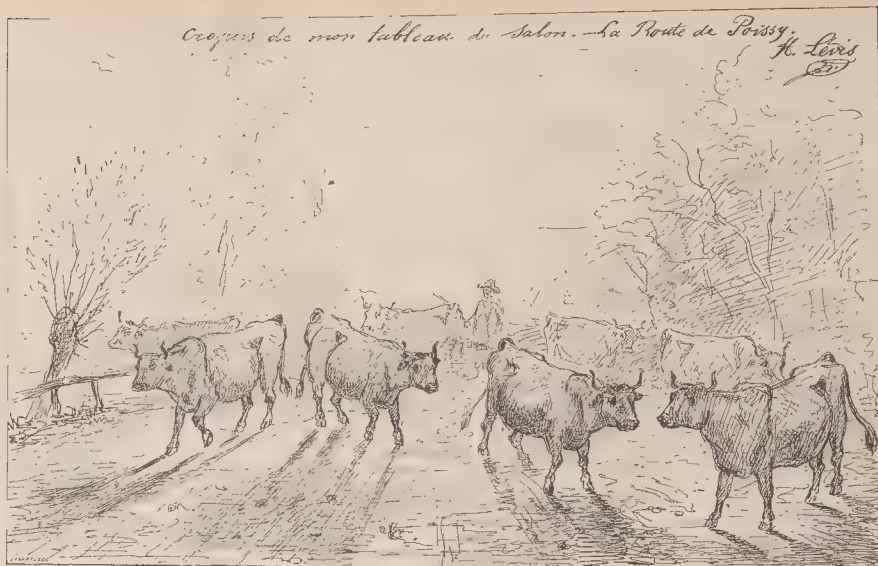 Croquis de mon tableau du Salon. - La Route de Poissy.
H. Lévis